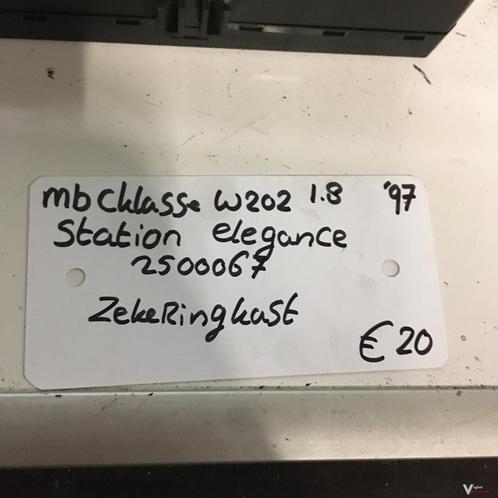 mb Cklasse W202 1.8 '97
Station elegance
2500067
ZekeRingkast
€ 20